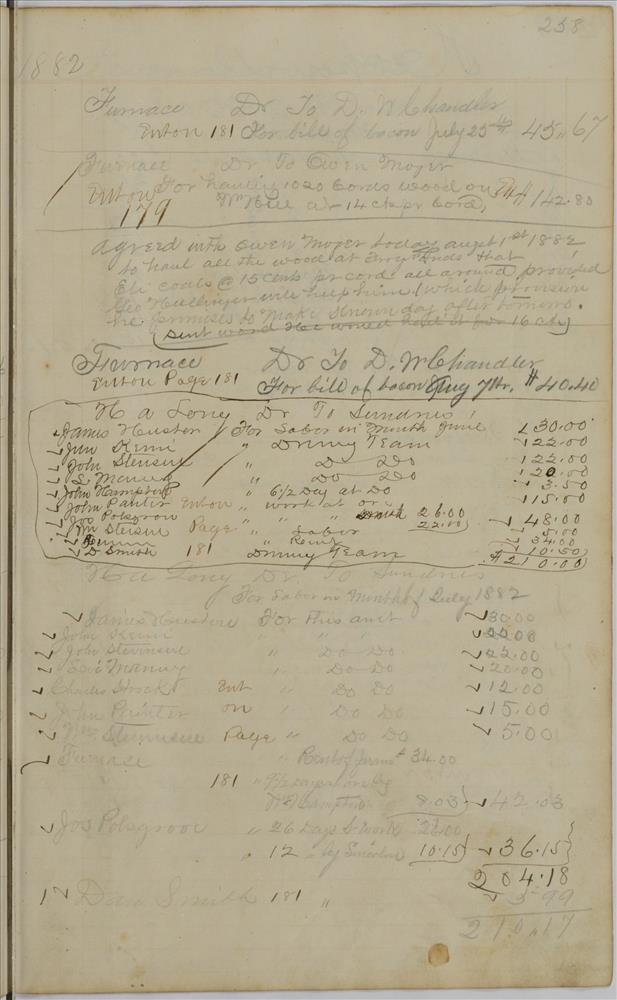 258
1882
Furnace Dr To D. W Chandler
Enton 181 For bill of bacon July 25th 45.67
Furnace Dr To Owen Moyer
Enton For hauling 1020 Cords wood on
179 at 14 cts pr Cord, 142.80
agreed with Owen Moyer today augst 1st 1882
to haul all the wood at that
Eli coals @ 15 cents pr cord all around, provided
Geo will help him (which provision
he promises to make known day after tomoro.
(Sent word He would for 16 cts)
Furnace Dr To D. W Chandler
Enton Page 181 For bill of bacon Aug 7th. $40.40
H a Long Dr To Sundries
James Huster For Labor in Month June 30.00
Jno Kemi " Driving Team 22.00
John " Do Do 22.00
" Do Do 20.00
John Hampton " 6 1/2 Day at Do 3.50
John Panter Enton " work at ore 15.00
Jos Polsgrove " " Smith 26.00
22.00 48.00
Wm Page " Labor 5.00
" Rent 34.00
D Smith 181 Driving Team 10.50
$210.00
H a Long Dr. To Sundries
For Labor in Month of July 1882
James For this amt 30.00
John Kemi " " " 22.00
John " Do Do 22.00
" Do Do 20.00
Charles Ent " Do Do 12.00
John Painter on " Do Do 15.00
Wm Page " Do Do 5.00
Furnace " Rent of farm $34.00
181 " 7 1/2 Days at ore by
Hampton 8.03 42.03
Jos Polsgrove " 26 Days S. Work 26.00
" 12 " by 10.15 36.15
204.18
Dan Smith 181 " 5.99
210.17